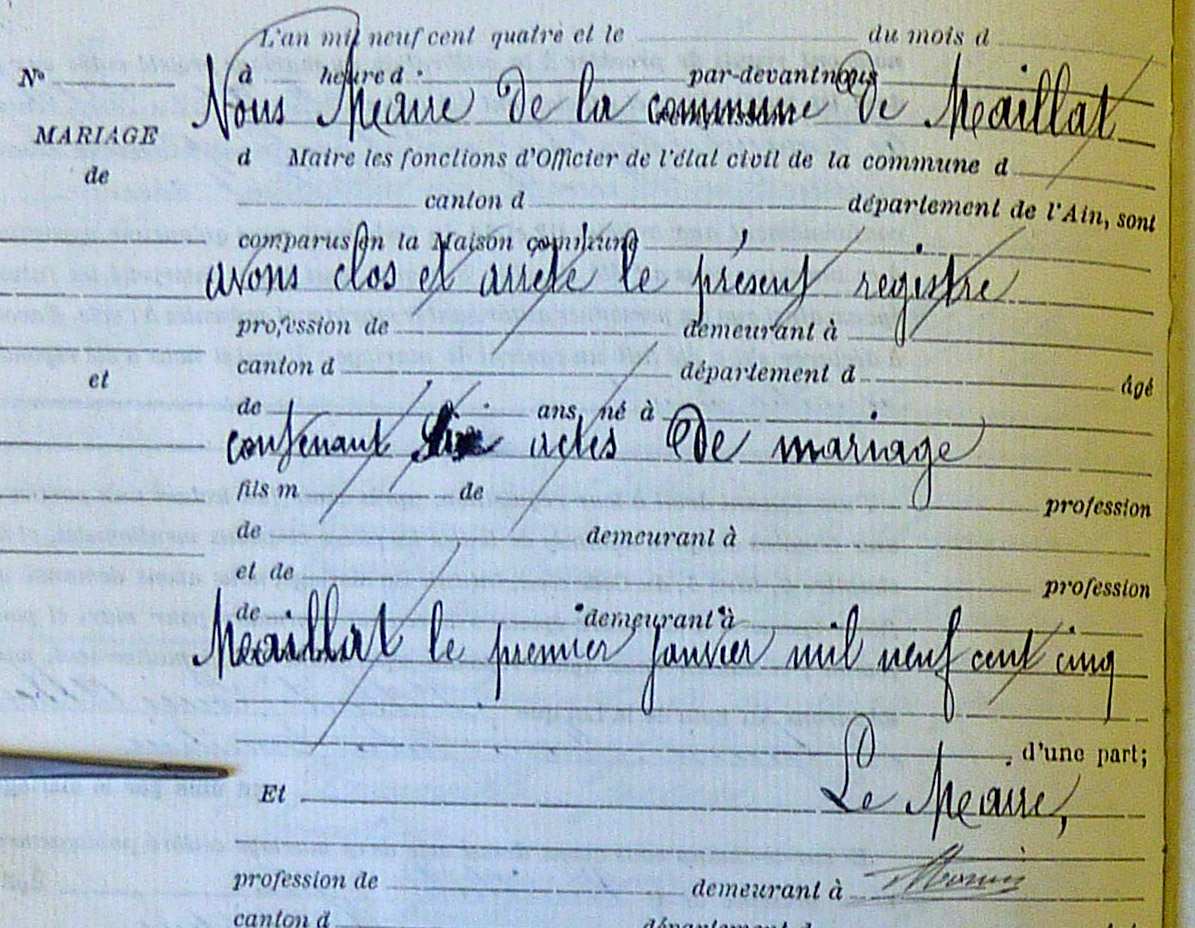 L'an mil neuf cent quatre et le du mois d
N° à heure d par-devant nous
Nous Maire de la commune de Maillat
MARIAGE
d Maire les fonctions d'Officier de l'état civil de la commune d
de
canton d département de l'Ain, sont
comparus en la Maison commune
avons clos et arrêté le présent registre
profession de demeurant à
canton d département d âgé
et
de ans, né à
contenant actes de mariage
fils m de profession
de demeurant à
et de profession
de demeurant à
Maillat le premier janvier mil neuf cent cinq
d'une part;
Et Le Maire,
profession de demeurant à
canton d département d